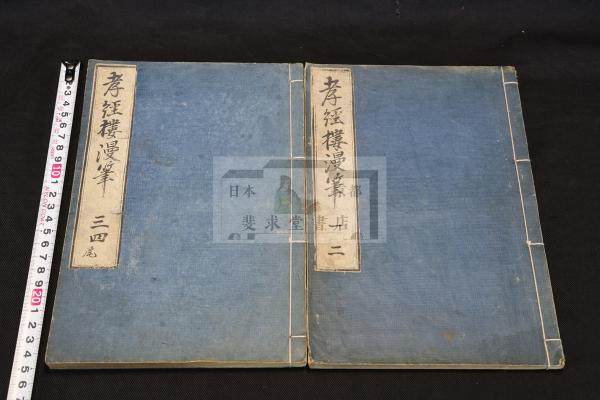 孝經樓漫筆 三四 尾
孝經樓漫筆 一 二
日本 京都
斐求堂書店
2 3 4 5 6 7 8 9 10 1 2 3 4 5 6 7 8 9 20 1 2 3 4 5 6 7